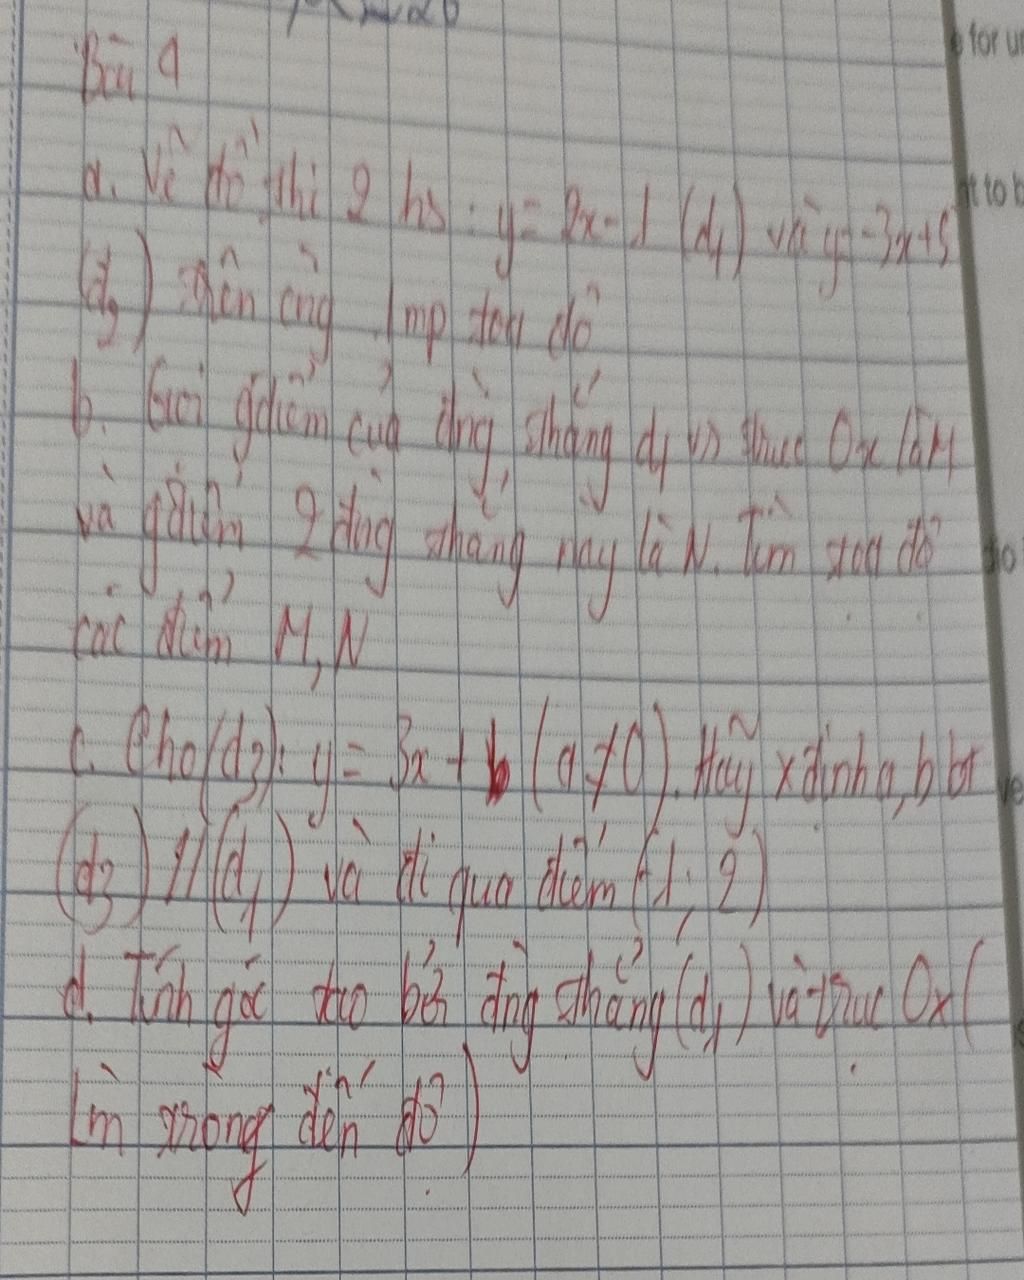 Bài 4
a. Vẽ đồ thị 2 hs : y = 2x - 1 (d1) và y = -3x + 5
(d2) trên cùng 1 mp toạ độ
b. Gọi gđiểm của đng thẳng d1 vs trục Ox là M
và gđiểm 2 đng thẳng này là N. Tìm toạ độ
các điểm M, N
c. Cho (d3): y = 3x + b (a ≠ 0). Hãy xđịnh a, b bt
(d3) // (d1) và đi qua điểm (-1; 2)
d. Tính góc tạo bởi đng thẳng (d1) và trục Ox (
làm tròn đến độ)
for
t to b